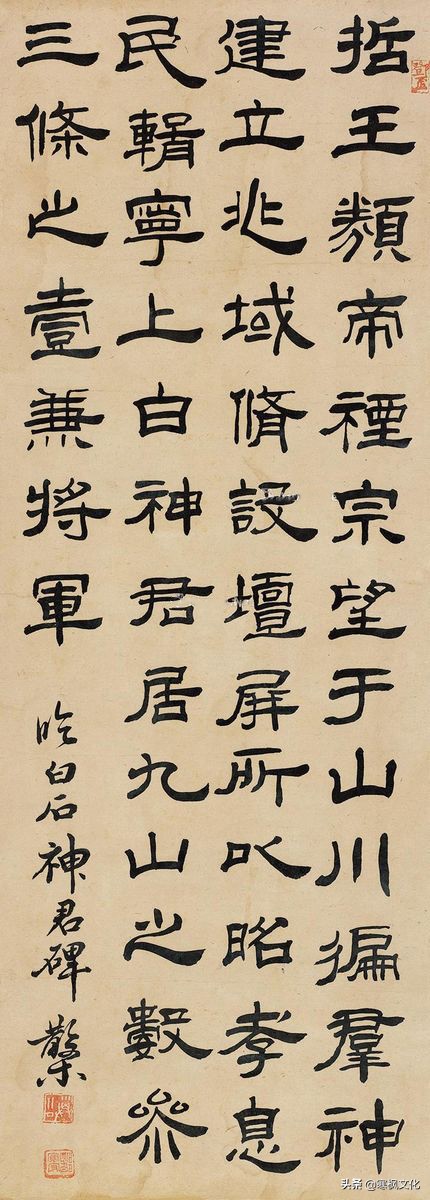 哲王類帝禋宗望于山川徧羣神
建立兆域脩設壇屏所以昭孝息
民輯寧上白神君居九山之數參
三條之壹兼將軍
臨白石神君碑
头条 @寒枫文化